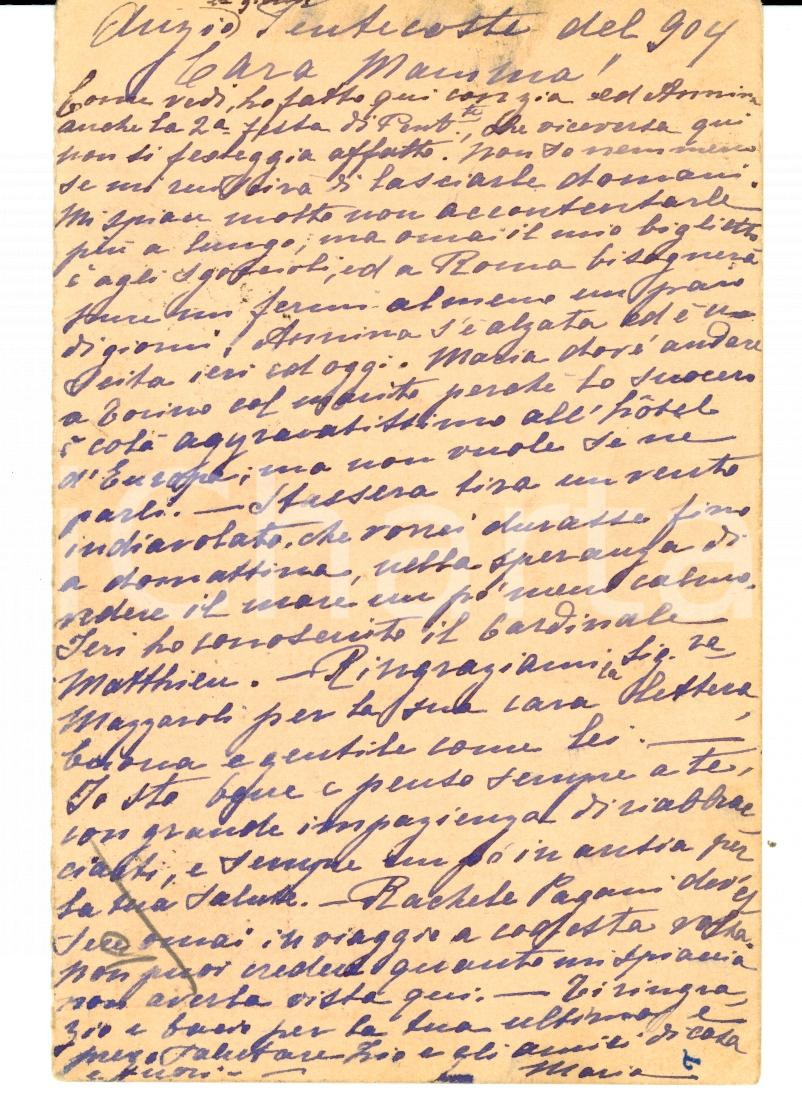 Anzio Pentecoste del 904
Cara Mamma!
Come vedi, ho fatto qui con zia ed Annina
anche la 2a festa di Pent.te, che viceversa qui
non si festeggia affatto. Non so nemmeno
se mi riuscirà di lasciarle domani.
Mi spiace molto non accontentarle
più a lungo, ma omai il mio biglietto
è agli sgoccioli, ed a Roma bisognerà
pure mi fermi almeno un paio
di giorni. Annina s'è alzata ed è u-
scita ieri ed oggi. Maria dov'è andare
a Torino col marito perché lo suocero
è colà aggravatissimo all'hôtel
d'Europe; ma non vuole se ne
parli. — Stassera tira un vento
indiavolato, che vorrei durasse fino
a domattina, nella speranza di
vedere il mare un pó meno calmo.
Ieri ho conosciuto il Cardinale
Matthieu. — Ringraziami la Sig.ra
Mazzaroli per la sua cara lettera,
buona e gentile come lei. —
Io sto bene e penso sempre a te,
con grande impazienza di riabbrac-
ciarti, e sempre un pó in ansia per
la tua salute. — Rachele Pagani dov'es
sere omai in viaggio a codesta volta.
non puoi credere quanto mi spiaccia
non averla vista qui. — Ti ringra,
zio e bacio per la tua ultima e
prego salutare Zio e gli amici di casa
e fuori. — Maria
2
iCharta